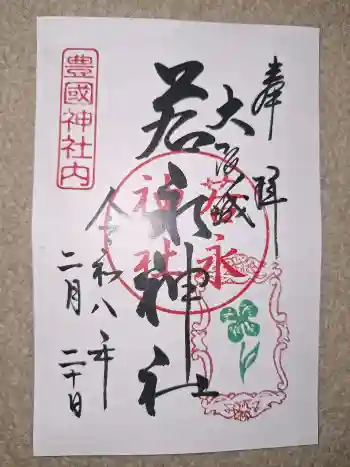 奉拝
大阪城
若永神社
若永神社
豊國神社内
令和八年
二月二十日